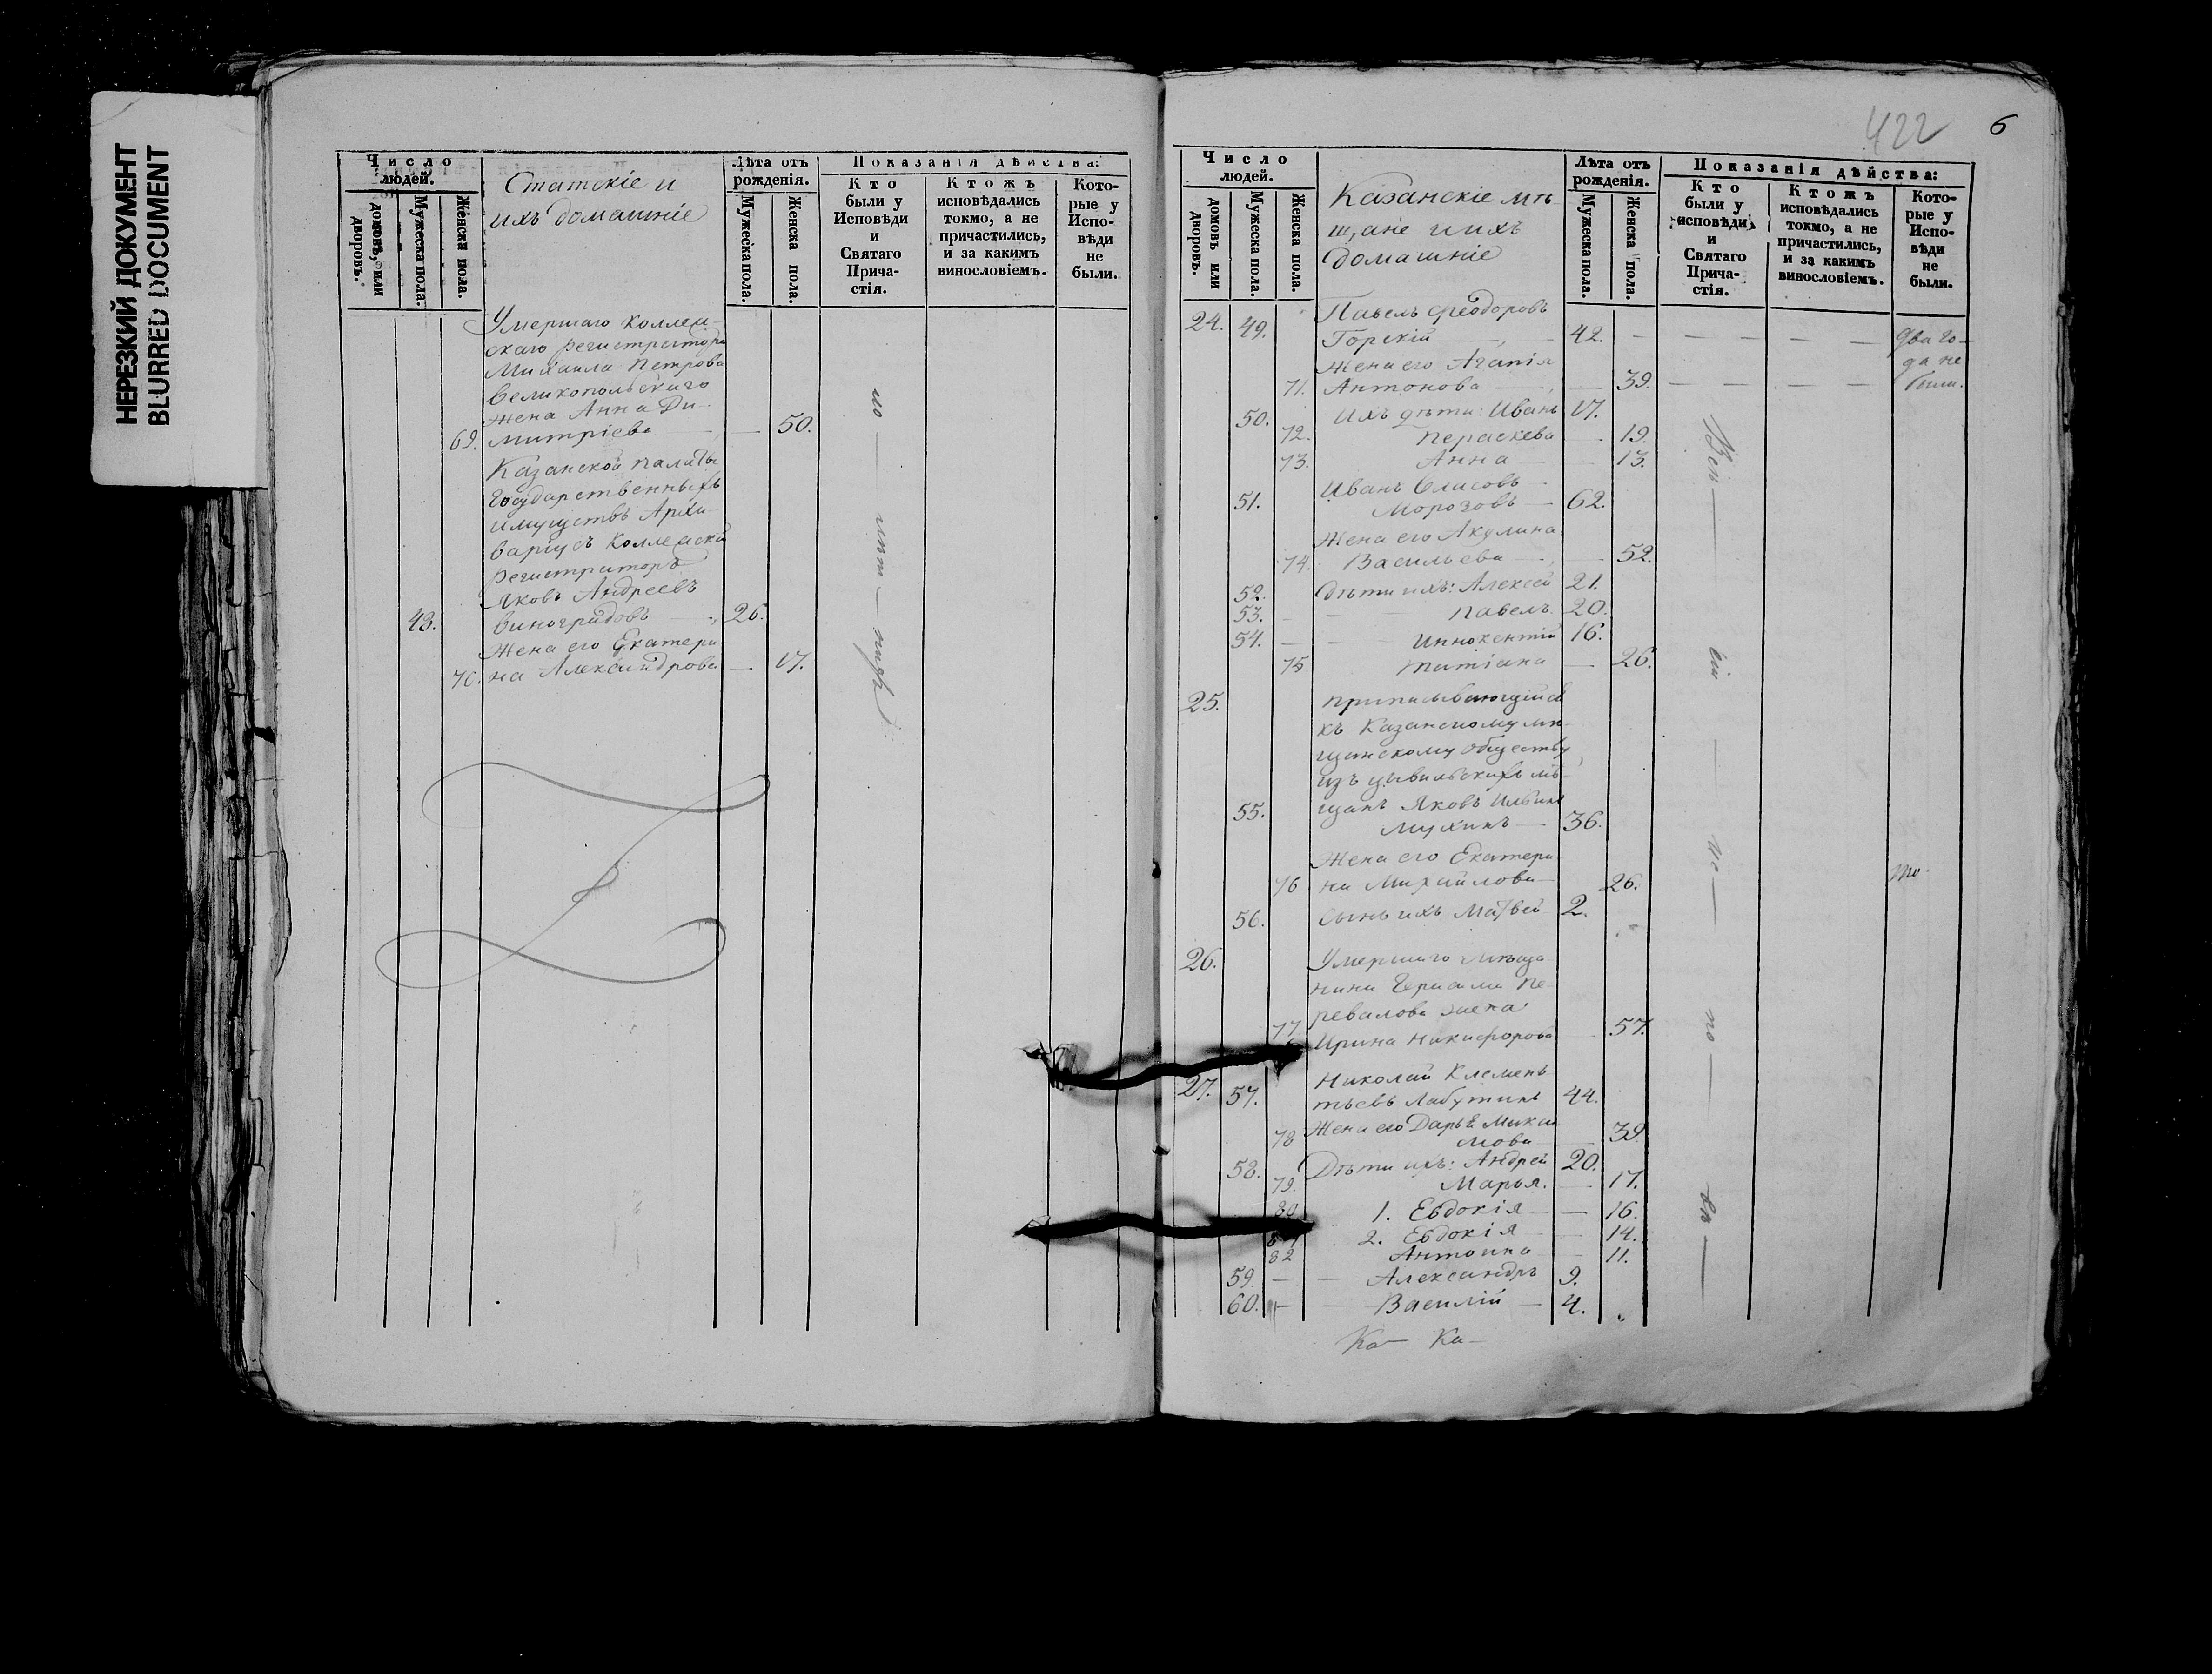 НЕРЕЗКИЙ ДОКУМЕНТ
BLURRED DOCUMENT
Число людей.
домовъ, или дворовъ.
Мужеска пола.
Женски пола.
Статскіе и
ихъ домашніе
Лѣта отъ рожденія.
Мужеска пола.
Женска пола.
Показанія дѣйства:
Кто были у Исповѣди и Святаго Прича-стія.
Ктожъ исповѣдались токмо, а не причастились, и за какимъ винословіемъ.
Кото-рые у Испо-вѣди не были.
Умершаго Коллеж-
скаго регистратора
Михаила Петрова
Великопольскаго
жена Анна Ди-
69. митріева — 50.
Казанской палаты
Государственныхъ
имуществъ Архи-
варіусъ Коллежскій
регистраторъ
Яковъ Андреевъ
43. Виноградовъ 26.
Жена его Екатери
70. на Александрова — 17.
422
6
Число людей.
домовъ или дворовъ.
Мужеска пола.
Женска пола.
Казанскіе мѣ-
щане и ихъ
домашніе
Лѣта отъ рожденія.
Мужеска пола.
Женска пола.
Показанія дѣйства:
Кто были у исповѣди и Святаго Прича-стія.
Ктожъ исповѣдались токмо, а не причастились, и за какимъ винословіемъ.
Кото-рые у Испо-вѣди не были.
Павелъ Ѳеодоровъ
24. 49. Горскій 42. — — — — Два го-
да не
были.
Жена его Агапія
71. Антонова — 39. — — — —
50. Ихъ дѣти: Иванъ 17.
72. Параскева — 19.
73. Анна — 13.
Иванъ Власовъ
51. Морозовъ — 62.
Жена его Акулина
74. Васильева — 52.
52. Дѣти ихъ: Алексей 21.
53. — Павелъ 20.
54. — Иннокентій 16.
75 Татіана — 26.
25. Приписывающійся
къ Казанскому мѣ-
щанскому обществу,
изъ цывильскихъ мѣ-
55. щанъ Яковъ Ильинъ
Мухинъ — 36.
Жена его Екатери-
76 на Михайлова — 26.
56. Сынъ ихъ Матвей 2.
26. Умершаго мѣща
нина Герасима Пе-
ревалова жена
77 Ирина Никифорова — 57.
27. 57. Николай Клемень
тьевъ Лабутинъ 44.
Жена его Дарья Макси
78 мова — 39
58. Дѣти ихъ: Андрей 20.
79. Марья. — 17.
80 1. Евдокія — 16.
2. Евдокія — 14.
82 Антонина — 11.
59. — Александръ 9.
60. — Василій — 4.
Ка— Ка—